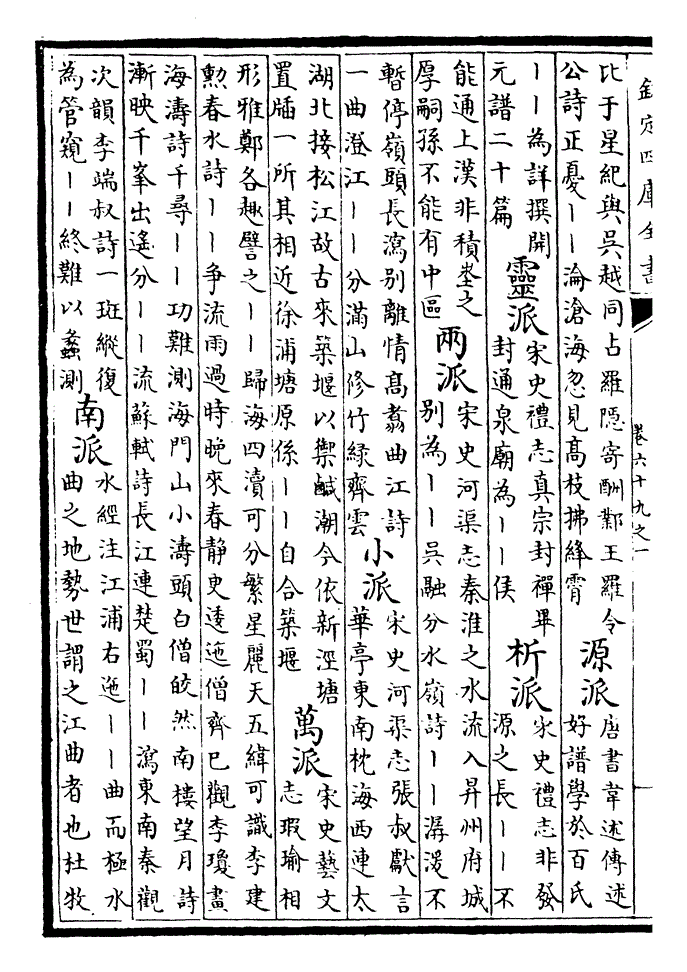 欽定四庫全書
卷六十九之一
比于星紀與吳越同占羅隱寄酬鄴王羅令
公詩正憂丨丨淪滄海忽見高枝拂絳霄
源派
唐書韋述傳述
好譜學於百氏
丨丨為詳撰開
元譜二十篇
靈派
宋史禮志真宗封禪畢
封通泉廟為丨丨侯
析派
宋史禮志非發
源之長丨丨不
能通上漢非積壘之
厚嗣孫不能有中區
兩派
宋史河渠志秦淮之水流入昇州府城
別為丨丨吳融分水嶺詩丨丨潺湲不
暫停嶺頭長瀉別離情高翥曲江詩
一曲澄江丨丨分滿山修竹綠齊雲
小派
宋史河渠志張叔獻言
華亭東南枕海西連太
湖北接松江故古來築堰以禦鹹潮今依新涇塘
置牐一所其相近徐浦塘原係丨丨自合築堰
萬派
宋史藝文
志瑕瑜相
形雅鄭各趣譬之丨丨歸海四瀆可分繁星麗天五緯可識李建
勲春水詩丨丨爭流雨過時晚來春靜更逶迤僧齊已觀李瓊畫
海濤詩千尋丨丨功難測海門山小濤頭白僧皎然南樓望月詩
漸映千峯出遙分丨丨流蘇軾詩長江連楚蜀丨丨瀉東南秦觀
次韻李端叔詩一斑縱復
為管窺丨丨終難以蠡測
南派
水經注江浦右迤丨丨曲而極水
曲之地勢世謂之江曲者也杜牧